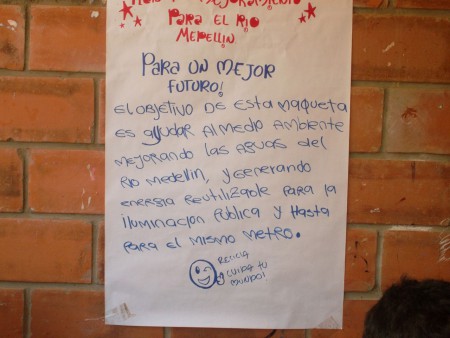 MEJORAMIENTO
PARA EL RIO
MEDELLIN
PARA UN MEJOR
FUTURO!
EL OBJETIVO DE ESTA MAQUETA
ES AYUDAR AL MEDIO AMBIENTE
MEJORANDO LAS AGUAS DEL
RIO MEDELLIN, Y GENERANDO
ENERGIA REUTILIZABLE PARA LA
ILUMINACION PÚBLICA Y HASTA
PARA EL MISMO METRO.
RECICLA
CUIDA TU
MUNDO!